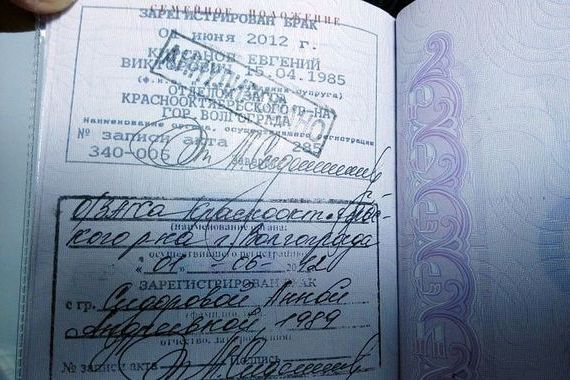 СЕМЕЙНОЕ ПОЛОЖЕНИЕ
ЗАРЕГИСТРИРОВАН БРАК
июня 2012 г.
ЕВГЕНИЙ
15.04.1985
супруга)
ОТДЕЛОМ
КРАСНООКТЯБРЬСКОГО Р-НА
ГОР. ВОЛГОГРАДА
Наименование органа, осуществившего регистрацию
№ записи акта 285
340-006
ОЗАГСа Краснооктябрьс-
(наименование органа:
кого р-на г. Волгограда
осуществившего регистрацию)
"01" - 06 - 2012
ЗАРЕГИСТРИРОВАН БРАК
с гр. Сидоровой Анной
Андреевной, 1989
№ записи акта Подпись